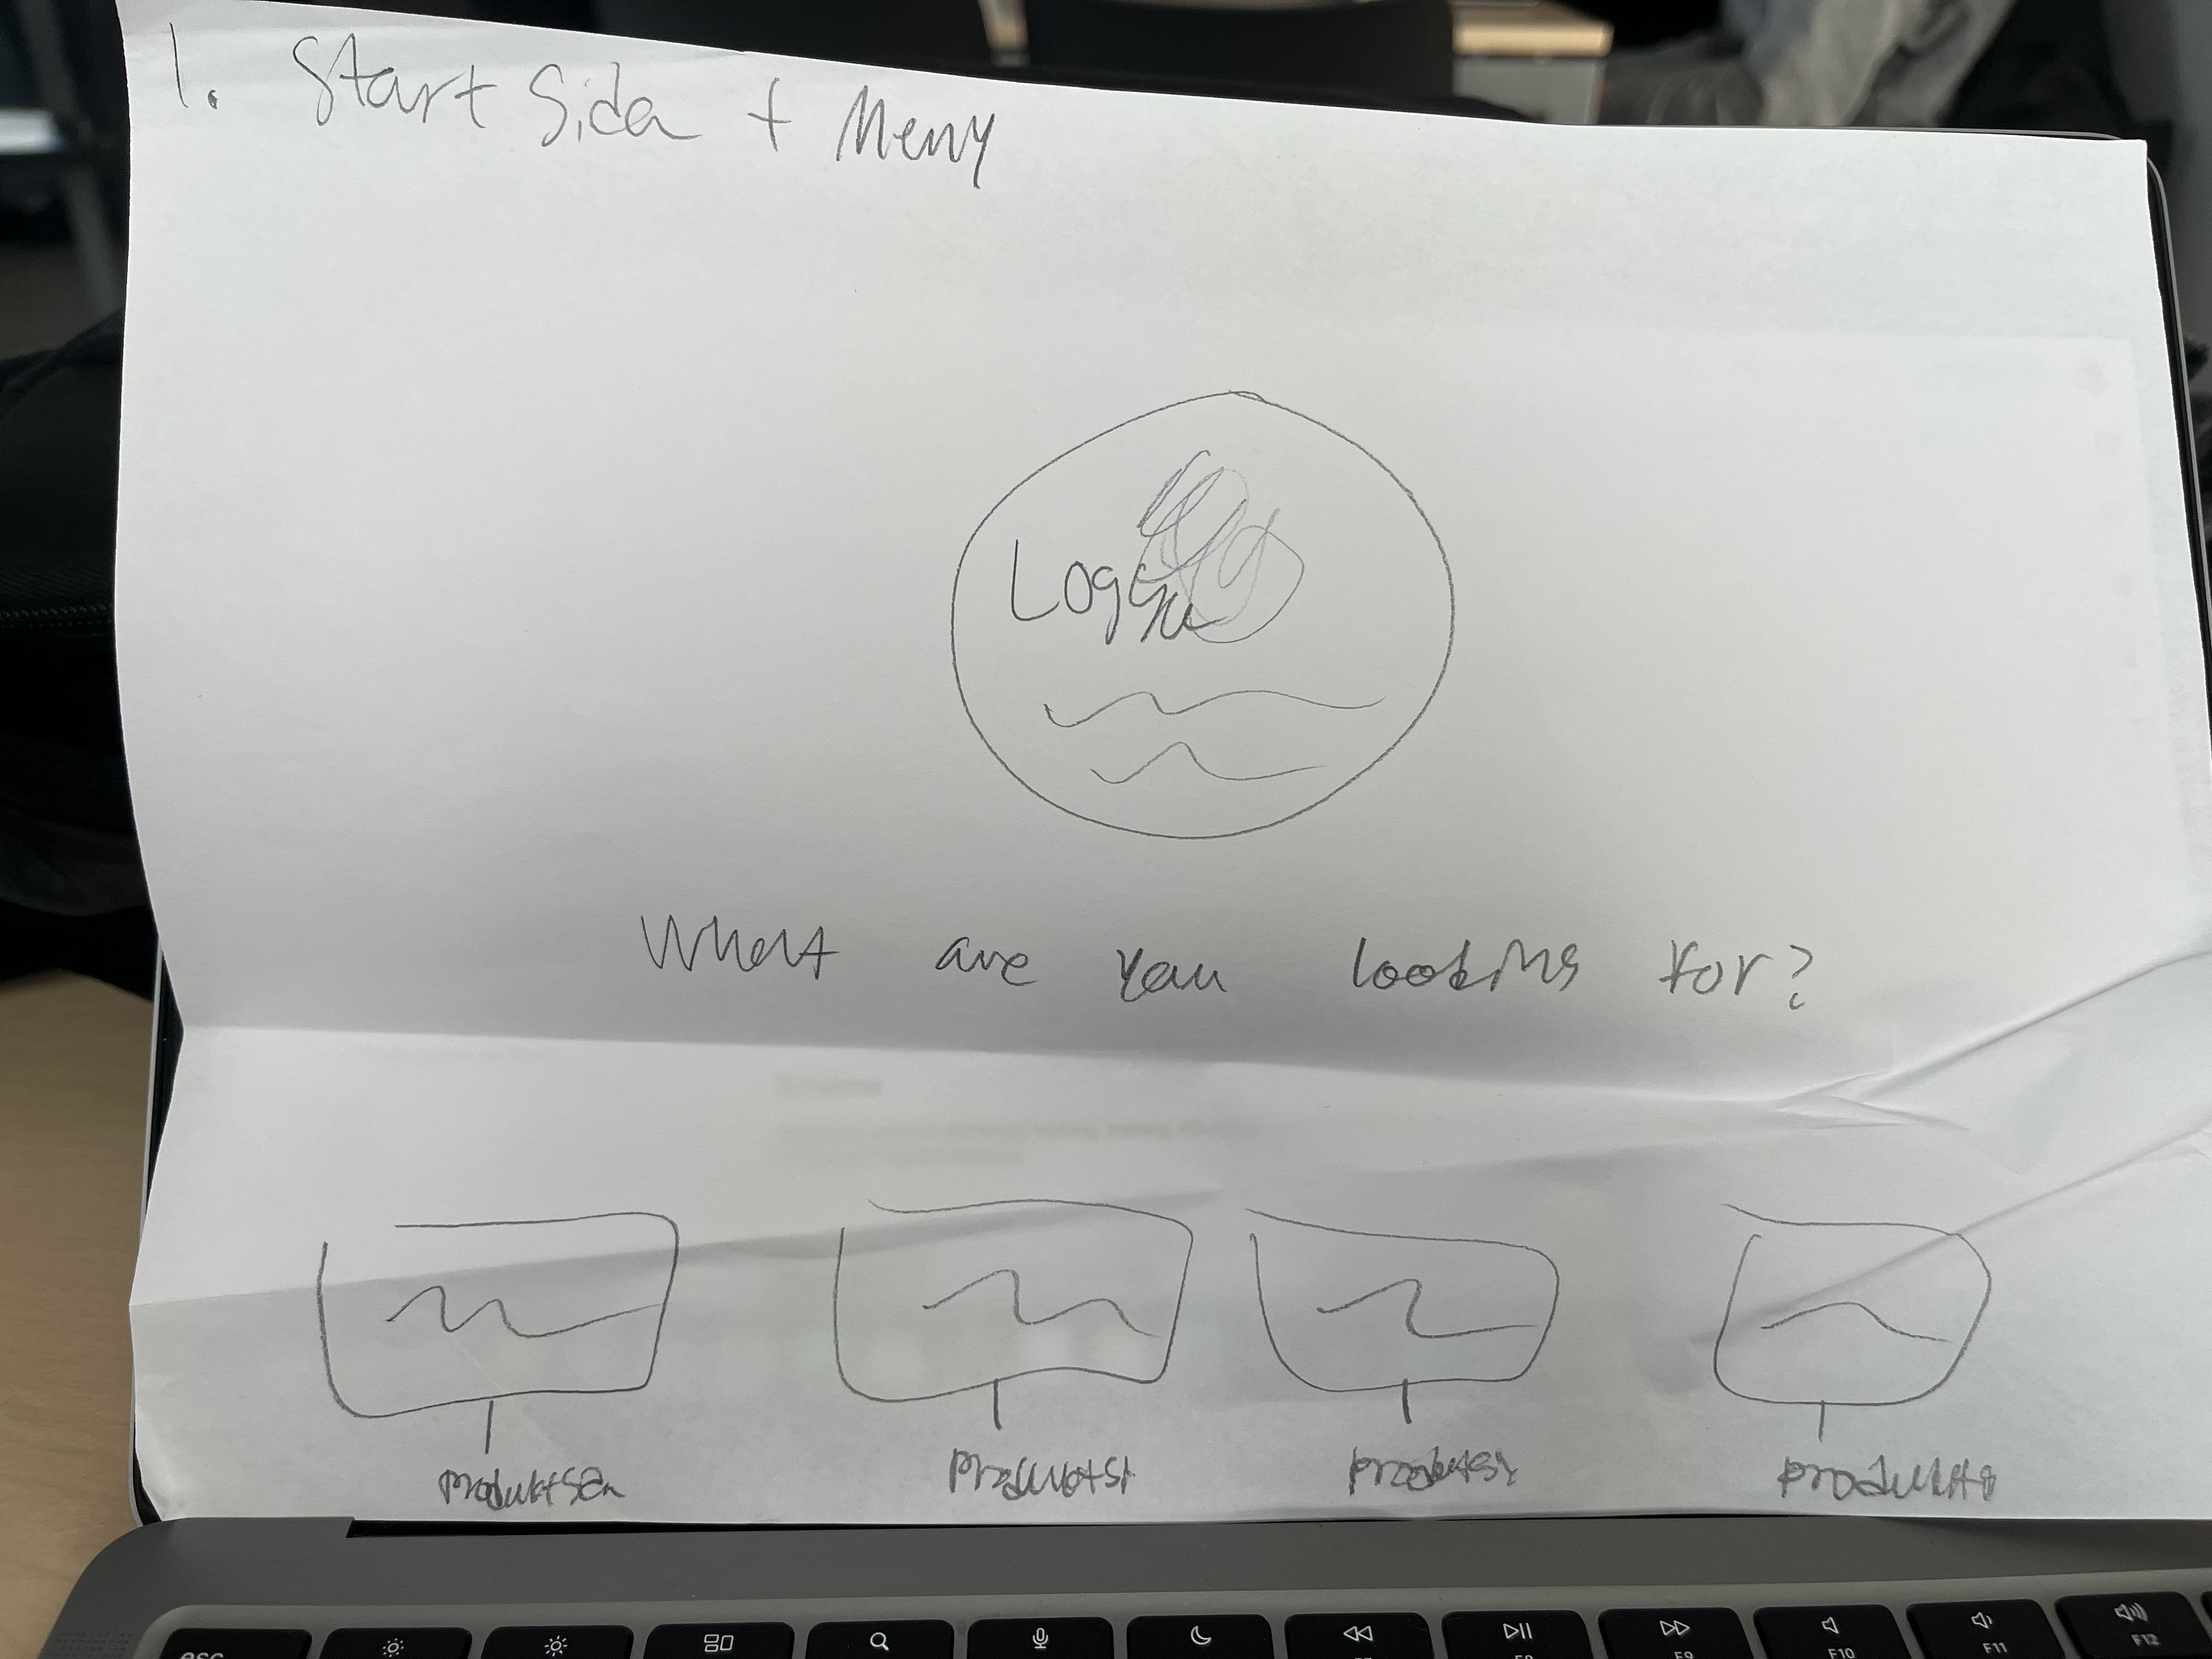 1. Start Sida + Meny
Logga
What are you looking for?
produktsen produktst produktsi produkts
esc
F8 F9 F10 F11 F12